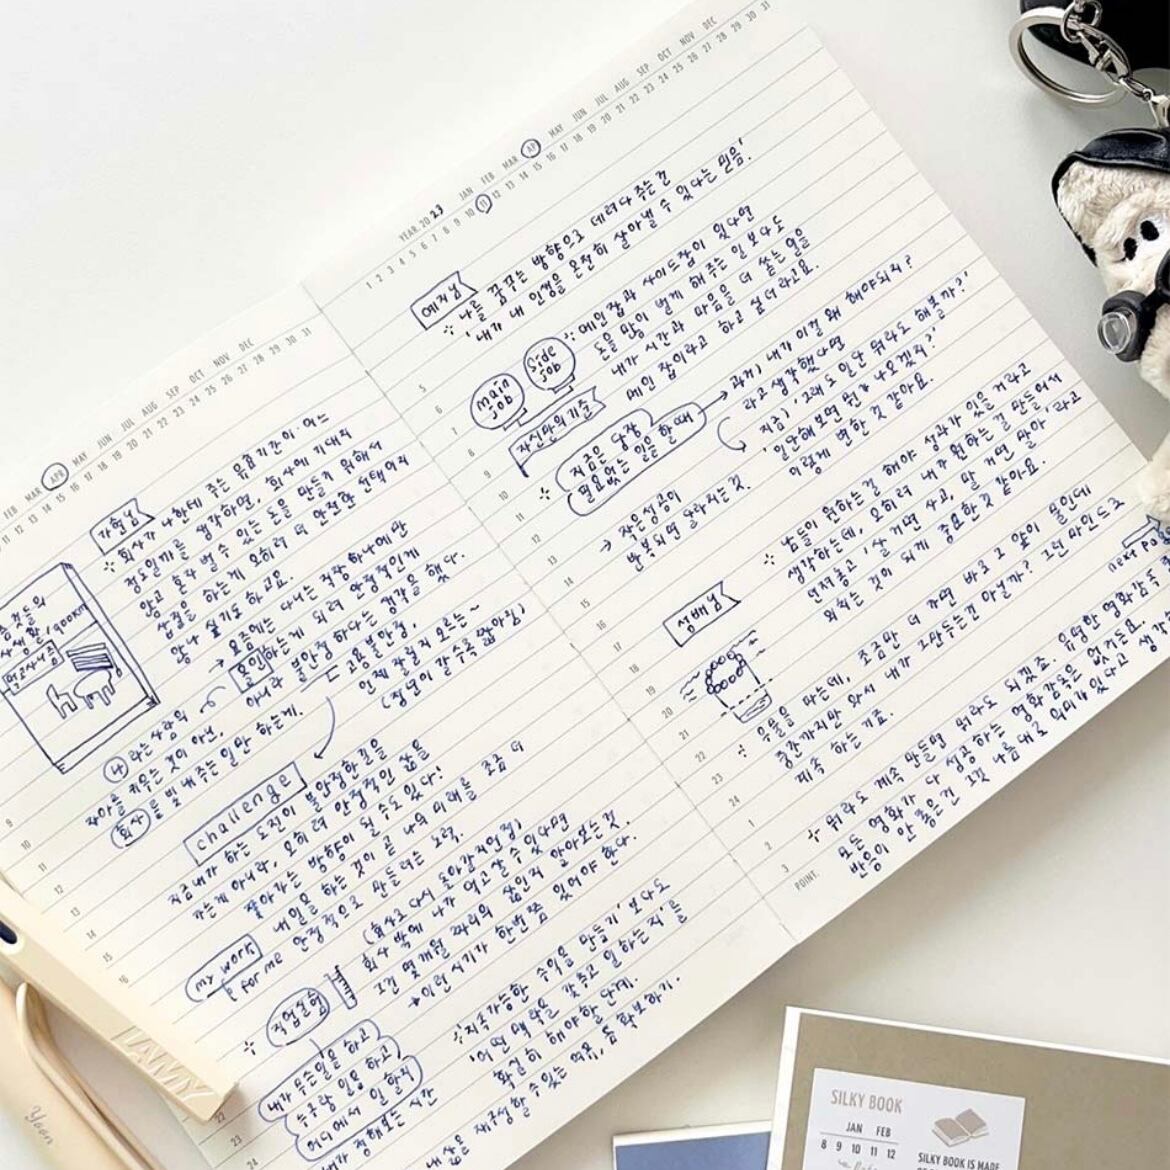 FEB MAR APR MAY JUN JUL AUG SEP OCT NOV DEC
11 12 13 14 15 16 17 18 19 20 21 22 23 24 25 26 27 28 29 30 31
가현님
회사가 나한테 주는 유급기간이 어느
정도일까를 생각하면, 회사에 기대지
않고 혼자 벌 수 있는 돈을 만들기 위해서
삽질을 하는게 오히려 더 안전한 선택이지
않나 싶기도 하고요.
→ 요즘에는 다니는 직장 하나에만
올인하는게 되려 안정적인게
아니라 불안정하다는 생각을 했다.
= 고용불안정,
언제 잘릴지 모르는~
(정년이 갈수록 짧아짐)
900km
나 라는 사람의
자아를 키우는 것이 아닌,
회사를 빛내주는 일만 하는게.
challenge
지금 내가 하는 도전이 불안정한 길을
가는게 아니라, 오히려 안정적인 삶을
찾아가는 방향이 될 수도 있다!
my work
for me
내 일을 하는 것이 곧 나의 미래를 조금 더
안정적으로 만드려는 노력.
직업실험
(회사로 다시 돌아갈지언정)
회사 밖에 나가 먹고 살 수 있다면
그건 몇개월 짜리의 삶인지 알아보는 것.
→ 이런 시기가 한번쯤 있어야 한다.
내가 무슨일을 하고
누구랑 일을 하고
어디에서 일 할지
내가 정해보는 시간
'지속가능한 수익을 만들기' 보다도
'어떤 맥락을 갖추고 일하는지'를
확실히 해야할 단계.
내 삶을 재구성할 수 있는 여유, 틈 확보하기.
9
10
11
12
13
14
15
16
22
23
24
YEAR 2023 JAN FEB MAR AP MAY JUN JUL AUG SEP OCT NOV DEC
1 2 3 4 5 6 7 8 9 10 11 12 13 14 15 16 17 18 19 20 21 22 23 24 25 26 27 28 29 30 31
예지님
나를 꿈꾸는 방향으로 데려다 주는 건
'내가 내 인생을 온전히 살아낼 수 있다는 믿음.'
main job
side job
자신만의 기준
메인잡과 사이드잡이 있다면
돈을 많이 벌게 해주는 일 보다도
내가 시간과 마음을 더 쏟는 일을
메인 잡이라고 하고 싶더라고요.
지금은 당장
필요없는 일을 할 때
과거) 내가 이걸 왜 해야되지?
라고 생각했다면
지금) '그래도 일단 뭐라도 해볼까?'
'일단 해보면 뭔가 나오겠지?'
이렇게 변한 것 같아요.
→ 작은성공이
반복되면 달라지는 것.
남들이 원하는 걸 해야 성과가 있을 거라고
생각하는데, 오히려 내가 원하는 걸 만들어서
던져놓고 '살 거면 사고, 말 거면 말아'라고
외치는 것이 되게 중요한 것 같아요.
next
성배님
우물을 파는데, 조금만 더 가면 바로 그 앞이 물인데
중간까지만 와서 내가 그만두는 건 아닐까? 그런 마인드로
계속 하는 거죠.
뭐라도 계속 만들면 뭐라도 되겠죠. 유명한 영화감독
모든 영화가 다 성공하는 영화감독은 없거든요.
반응이 안 좋은 건 그것 나름대로 의미가 있다고 생각
5
6
7
8
9
10
11
12
13
14
15
16
17
18
19
20
21
22
23
24
1
2
3
POINT.
LAMY
Yoon
SILKY BOOK
JAN FEB
8 9 10 11 12
SILKY BOOK IS MADE